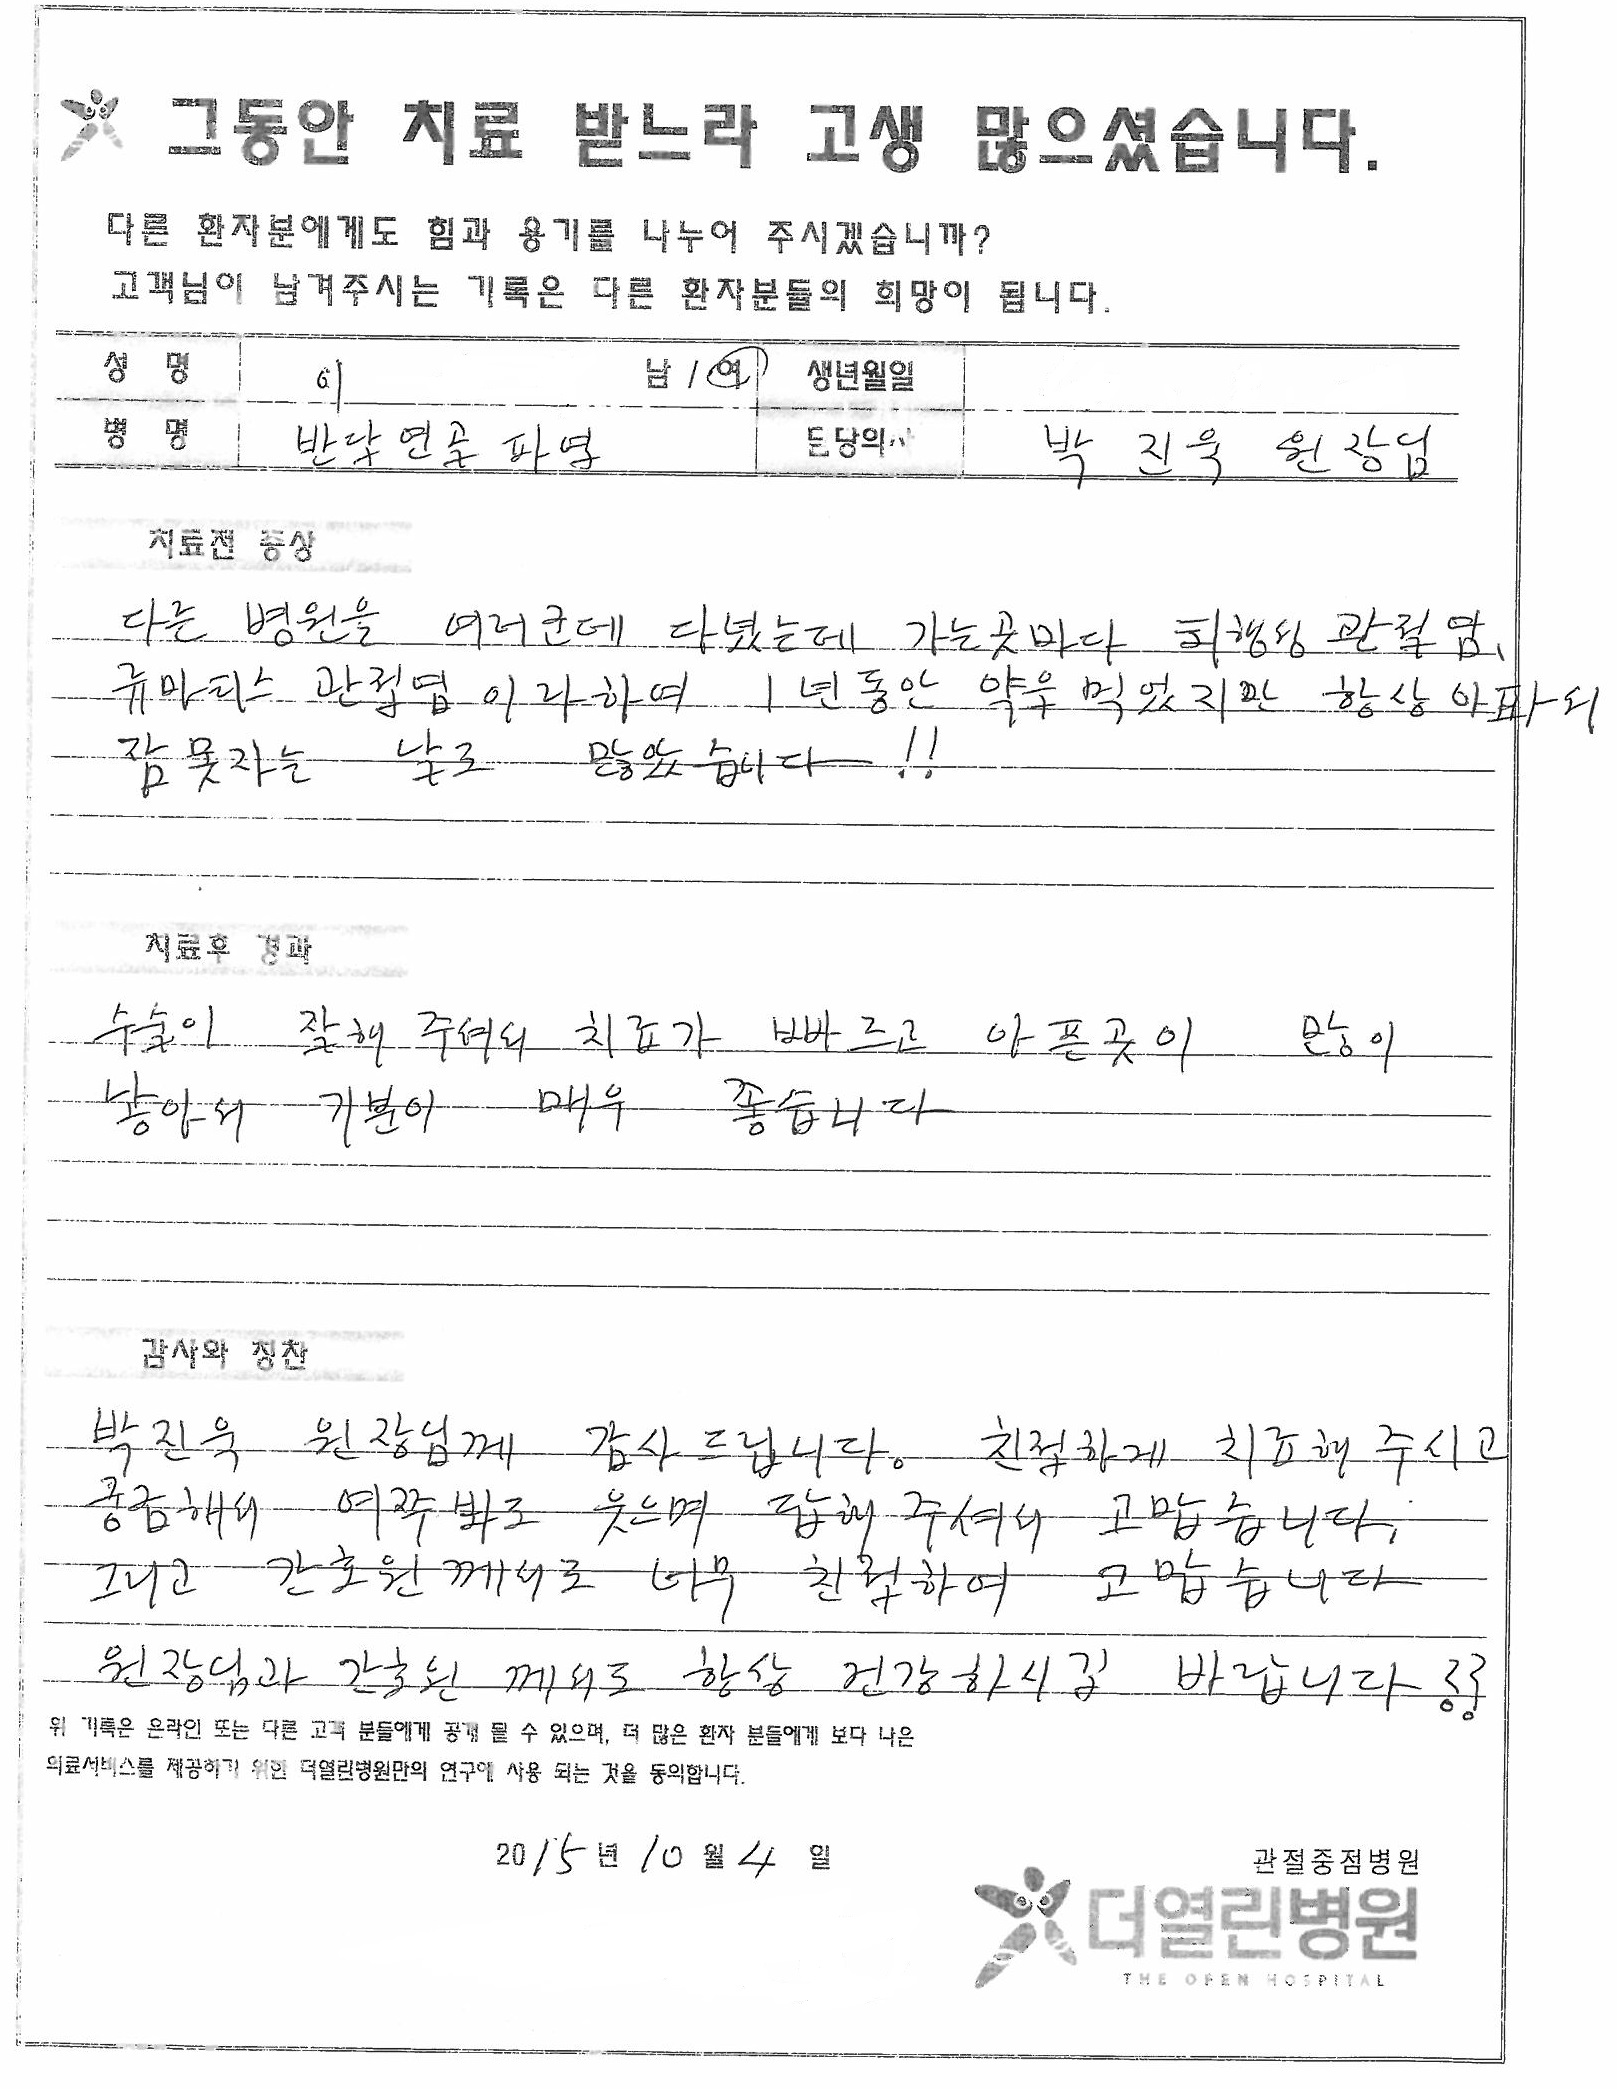 그동안 치료 받느라 고생 많으셨습니다.
다른 환자분에게도 힘과 용기를 나누어 주시겠습니까?
고객님이 남겨주시는 기록은 다른 환자분들의 희망이 됩니다.
성 명 이 남 / 여 생년월일
병 명 반달연골 파열 담당의사 박 진욱 원장님
치료전 증상
다른 병원을 여러군데 다녔는데 가는곳마다 퇴행성 관절염,
류마티스 관절염 이라하여 1년동안 약을 먹었지만 항상 아파서
잠 못자는 날도 많았습니다 !!
치료후 경과
수술이 잘해 주셔서 치료가 빠르고 아픈곳이 많이
낳아서 기분이 매우 좋습니다
감사와 칭찬
박진욱 원장님께 감사 드립니다. 친절하게 치료해 주시고
궁금해서 여쭈봐도 웃으며 답해 주셔서 고맙습니다.
그리고 간호원께서도 너무 친절하여 고맙습니다
원장님과 간호원 께서도 항상 건강하시길 바랍니다
위 기록은 온라인 또는 다른 고객 분들에게 공개 될 수 있으며, 더 많은 환자 분들에게 보다 나은
의료서비스를 제공하기 위한 더열린병원만의 연구에 사용 되는 것을 동의합니다.
2015년 10월 4 일
관절중점병원
더열린병원
THE OPEN HOSPITAL